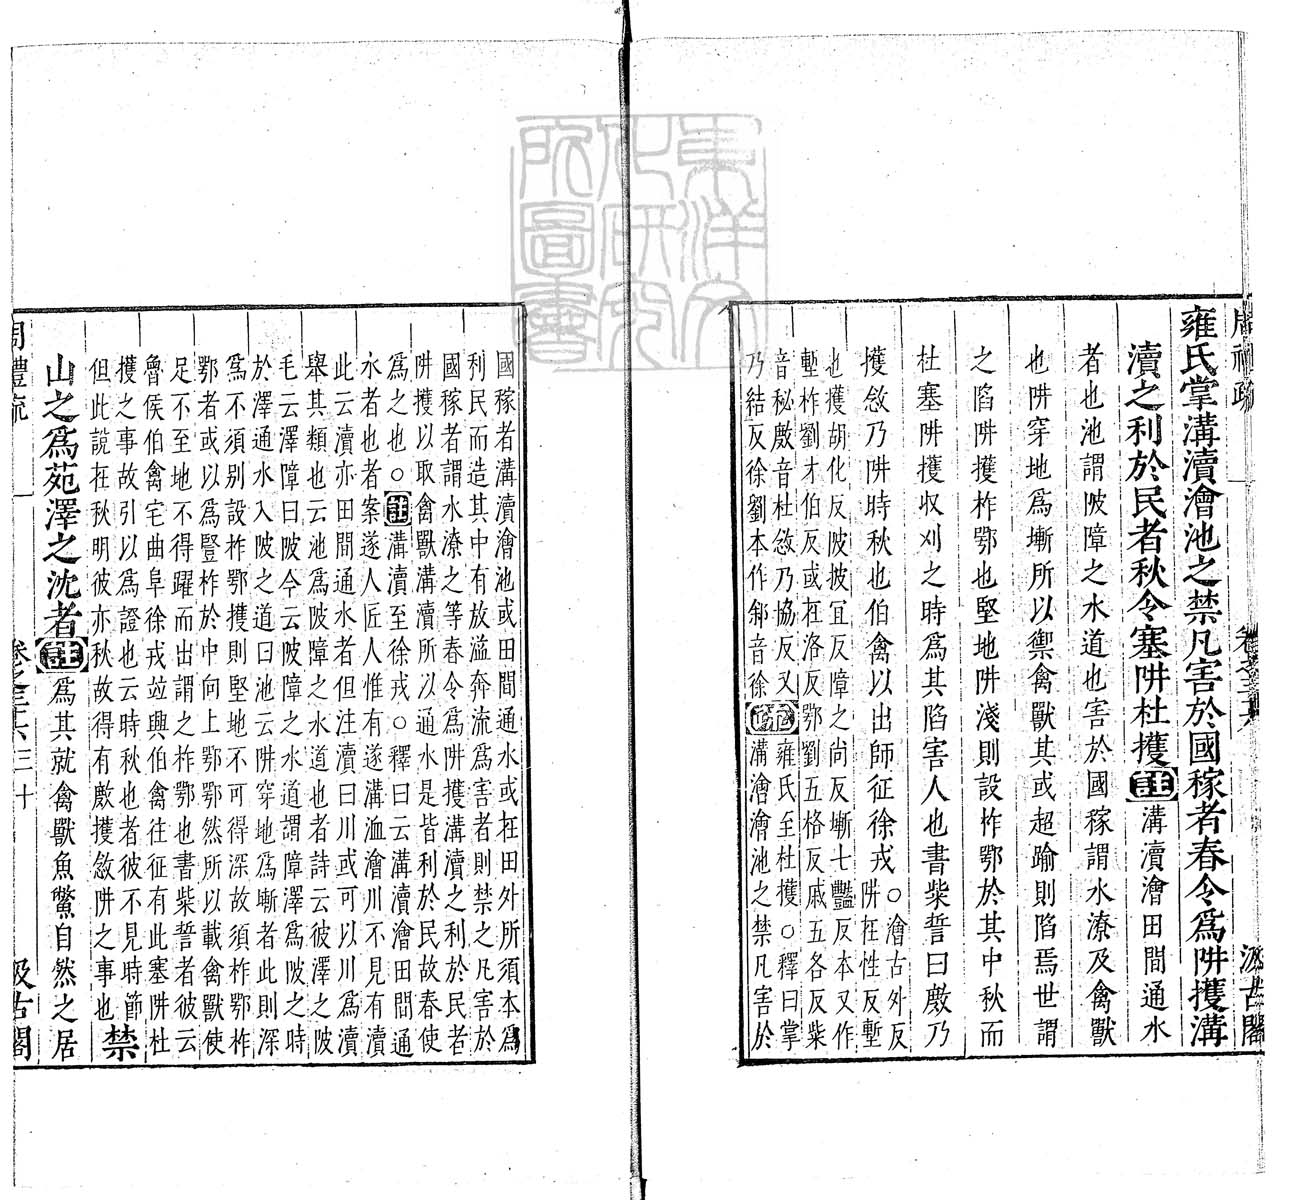 周禮疏 卷之三十六 汲古閣
雍氏掌溝瀆澮池之禁凡害於國稼者春令爲阱擭溝
瀆之利於民者秋令塞阱杜擭註溝瀆澮田間通水
者也池謂陂障之水道也害於國稼謂水潦及禽獸
也阱穿地爲塹所以禦禽獸其或超踰則陷焉世謂
之陷阱擭柞鄂也堅地阱淺則設柞鄂於其中秋而
杜塞阱擭収刈之時爲其陷害人也書柴誓曰敜乃
擭敜乃阱時秋也伯禽以出師征徐戎
○澮古外反
阱在性反塹
也擭胡化反陂披冝反障之尚反塹七豔反本又作
壍柞劉才伯反或在洛反鄂劉五格反戚五各反柴
音秘敜音杜敜乃協反又
乃結反徐劉本作郲音徐疏
雍氏至杜擭○釋曰掌
溝瀆澮池之禁凡害於
國稼者溝瀆澮池或田間通水或在田外所須本爲
利民而造其中有放溢奔流爲害者則禁之凡害於
國稼者謂水潦之等春令爲阱擭溝瀆之利於民者
阱擭以取禽獸溝瀆所以通水是皆利於民故春使
爲之也○註溝瀆至徐戎○釋曰云溝瀆澮田間通
水者也者案遂人匠人惟有遂溝洫澮川不見有瀆
此云瀆亦田間通水者但注瀆曰川或可以川爲瀆
舉其類也云池爲陂障之水道也者詩云彼澤之陂
毛云澤障曰陂今云陂障之水道謂障澤爲陂之時
於澤通水入陂之道曰池云阱穿地爲塹者此則深
爲不須別設柞鄂擭則堅地不可得深故須柞鄂柞
鄂者或以爲豎柞於中向上鄂鄂然所以載禽獸使
足不至地不得躍而出謂之柞鄂也書柴誓者彼云
魯侯伯禽宅曲阜徐戎竝興伯禽往征有此塞阱杜
擭之事故引以爲證也云時秋也者彼不見時節
但此說在秋明彼亦秋故得有敜擭斂阱之事也禁
山之爲苑澤之沈者註爲其就禽獸魚鱉自然之居
周禮疏 卷之三十六 三十 汲古閣
東洋文
化研究
所圖書